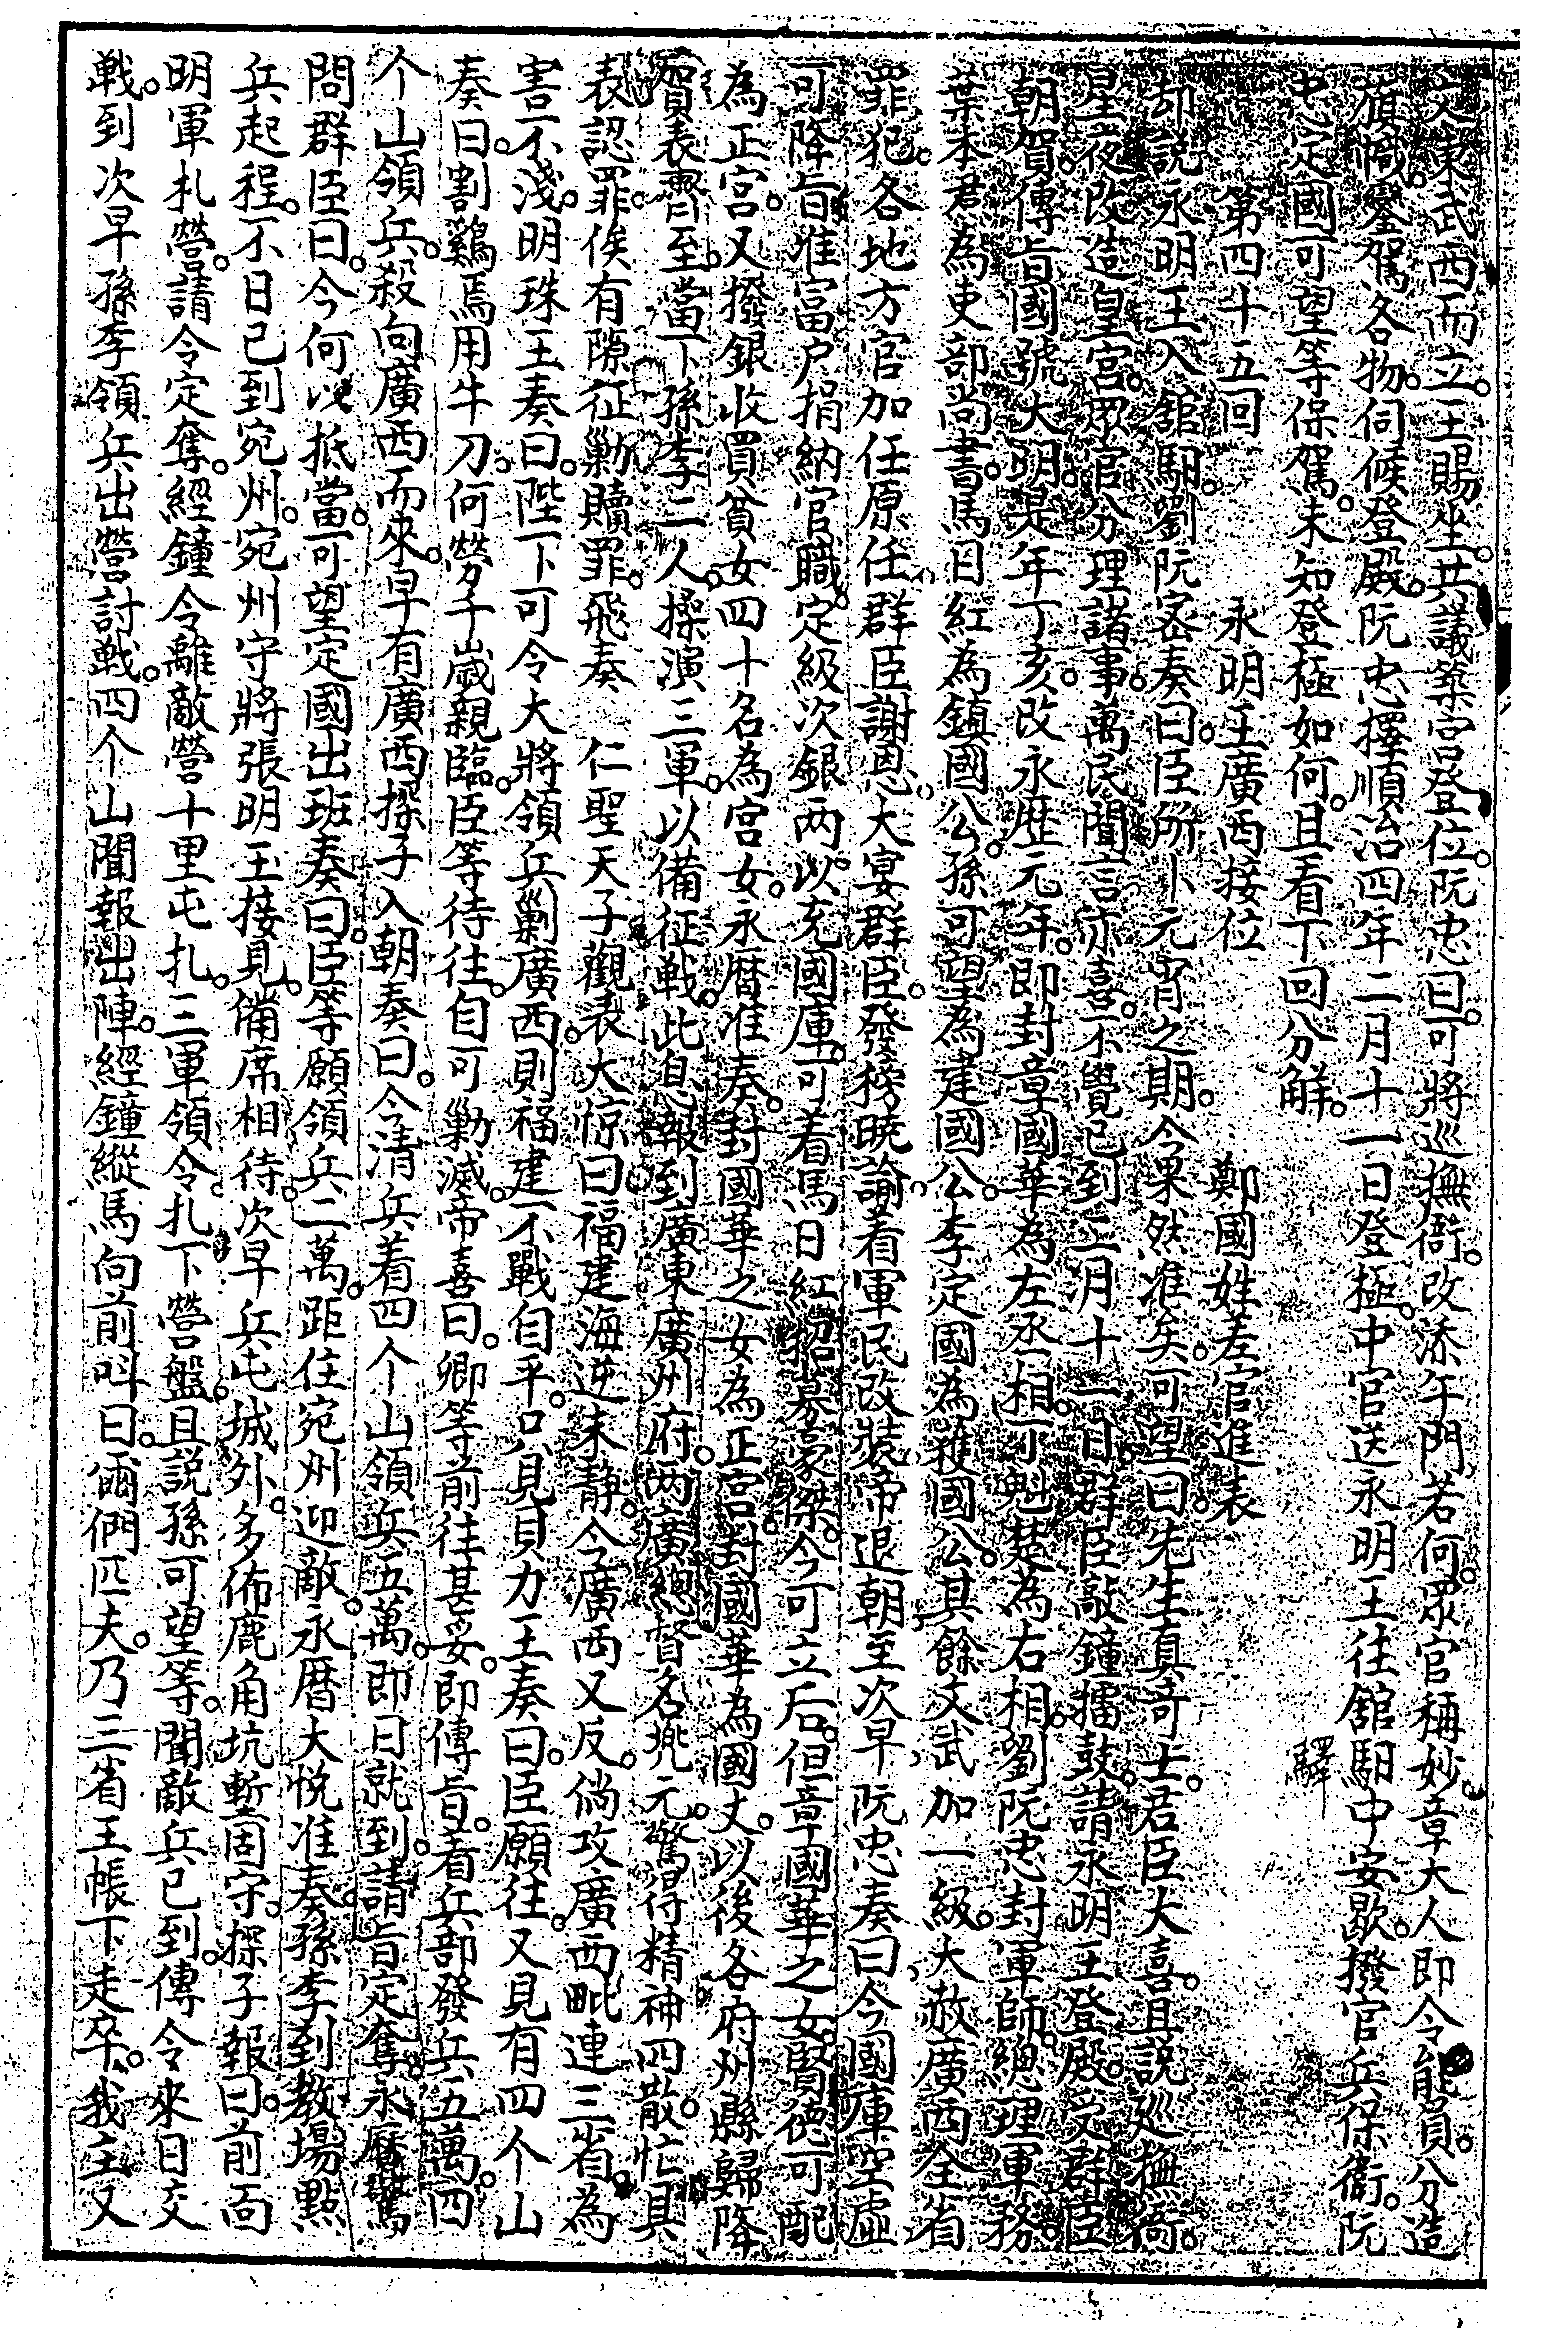 文東武西而立。王賜坐。共議築宮登位。阮忠曰。可將巡撫衙。改添午門若何。眾官稱妙。章大人即令能員。分造
旗幟。鑾駕各物。伺候登殿。阮忠擇順治四年二月十一日登極。中官送永明王往舘駟中安歇。撥官兵保衛。阮
忠定國可望等保駕。未知登極如何。且看下回分解。 驛
第四十五回 永明王廣西接位 鄭國姓差官進表
却說永明王入舘駟。劉阮密奏曰。臣所卜元宵之期。今果然准矣。可望曰。先生真奇士。君臣大喜。且說巡撫衙。
星夜改造皇宮。眾官分理諸事。萬民聞言亦喜。不覺已到二月十一日。群臣敲鐘擂鼓。請永明王登殿。受群臣
朝賀。傳旨國號大明。是年丁亥。改永歷元年。即封章國華為左丞相。可魁楚為右相。劉阮忠封軍師。總理軍務
葉木君為吏部尚書。馬日紅為鎮國公。孫可望為建國公。李定國為護國公。其餘文武加一級。大赦廣西全省
罪犯。各地方官加任原任。群臣謝恩。大宴群臣。發榜曉諭。看軍民改裝。帝退朝至次早。阮忠奏曰。今國庫空虛
可降旨准富戶捐納官職。定級次銀兩。以充國庫。可着馬日紅招募豪傑。今可立后。但章國華之女賢德可配
為正宮。又撥銀收買貧女四十名為宮女。永曆准奏。封國華之女為正宮。封國華為國丈。以後各府州縣歸降
賀表齊至。當下孫李二人。操演三軍。以備征戰。此息報到廣東廣州府。两廣總督名兠元。驚得精神四散。忙具
表認罪。俟有隙征勦贖罪。飛奏 仁聖天子觀表大惊曰。福建海逆未靜。今廣西又反。倘攻廣西毗連三省。為
害不淺。明珠王奏曰。陛下可令大將領兵剿廣西。則福建不戰自平。只見貝力王奏曰。臣願往。又見有四个山
奏曰。割鷄焉用牛刀。何勞千歲親臨。臣等待往。自可勦滅。帝喜曰。卿等前往甚妥。即傳旨。着兵部發兵五萬。四
个山領兵。殺向廣西而來。早有廣西探子入朝奏曰。今清兵着四个山領兵五萬。即日就到。請旨定奪。永曆驚
問群臣曰。今何以抵當。可望定國出班奏曰。臣等願領兵二萬。距住宛州迎敵。永曆大悅准奏。孫李到教場點
兵起程。不日已到宛州。宛州守將張明玉接見。備席相待。次早兵屯城外。多佈鹿角坑塹固守。探子報曰。前面
明軍札營。請令定奪。經鐘令離敵營十里屯扎。三軍領令。扎下營盤。且說孫可望等。聞敵兵已到。傳令來日交
戰。到次早孫李領兵出營討戰。四个山聞報出陣。經鐘縱馬向前呌曰。爾們匹夫。乃三省王帳下走卒。我主又